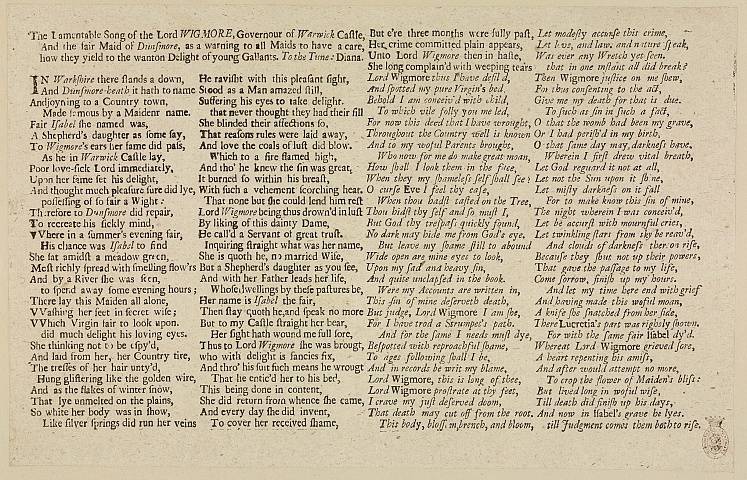 The Lamentable Song of the Lord WIGMORE, Governour of Warwick Castle,
And the fair Maid of Dunsmore, as a warning to all Maids to have a care,
how they yield to the wanton Delight of young Gallants. To the Tune: Diana.
IN Warkshire there stands a down,
And Dunsmore-heath it hath to name
Andjoyning to a Country town,
Made famous by a Maidens name.
Fair Isabel she named was,
A Shepherd's daughter as some say,
To Wigmore's ears her fame did pass,
As he in Warwick Castle lay,
Poor love-sick Lord immediatly,
Upon her fame set his delight,
And thought much pleasure sure did lye,
possessing of so fair a Wight:
Therefore to Dunsmore did repair,
To recreate his sickly mind,
VVhere in a summer's evening fair,
His chance was Isabel to find
She sat amidst a meadow green,
Most richly spread with smelling flow'rs
And by a River she was seen,
to spend away some evening hours;
There lay this Maiden all alone,
VVashing her feet in secret wise;
VVhich Virgin fair to look upon.
did much delight his loving eyes.
She thinking not to be espy'd,
And laid from her, her Country tire,
The tresses of her hair unty'd,
Hung glistering like the golden wire,
And as the flakes of winter snow,
That lye unmelted on the plains,
So white her body was in show,
Like silver springs did run her veins
He ravisht with this pleasant sight,
Stood as a Man amazed still,
Suffering his eyes to take delight.
that never thought they had their fill
She blinded their affections so,
That reasons rules were laid away,
And love the coals of lust did blow.
Which to a fire flamed high,
And tho' he knew the sin was great,
It burned so within his breast,
With such a vehement scorching hear.
That none but she could lend him rest
Lord Wigmore being thus drown'd in lust
By liking of this dainty Dame,
He call'd a Servant of great trust.
Inquiring straight what was her name,
She is quoth he, no married Wife,
But a Shepherd's daughter as you see,
And with her Father leads her life,
Whose dwellings by these pastures be,
Her name is Isabel the fair,
Then stay quoth he, and speak no more
But to my Castle straight her bear,
Her sight hath wound me full sore,
Thus to Lord Wigmore she was brougt,
who with delight is fancies fix,
And thro' his suit such means he wrougt
That he entic'd her to his bed,
This being done in content,
She did return from whence she came,
And every day she did invent,
To cover her received shame,
But e're three months were fully past,
Her crime committed plain appears,
Unto Lord Wigmore then in haste,
She long complain'd with weeping tears
Lord Wigmore thus I have defil'd,
And spotted my pure Virgin's bed,
Behold I am conceiv'd with child,
To which vile folly you me led,
For now this deed that I have wrought,
Throughout the Country well is known
And to my woful Parents brought,
Who now for me do make great moan,
How shall I look them in the face,
When they my shameless self shall see?
O curse Eve I feel thy case,
When thou hadst tasted on the Tree,
Thou hidst thy self and so must I,
But God thy trespass quickly found,
No dark may hide me from God's eye.
But leave my shame still to abound
Wide open are mine eyes to look,
Upon my sad and heavy sin,
And quite unclasped in the book.
Where my Accounts are written in,
This sin of mine deserveth death,
But judge, Lord Wigmore I am she,
For I have trod a Strumpet's path.
And for the same I needs must dye,
Bespotted with reproachful shame,
To ages following shall I be,
And in records be writ my blame.
Lord Wigmore, this is long of thee,
Lord Wigmore prostrate at thy feet,
I crave my just deserved doom,
That death may cut off from the root.
This body, blossom, brench, and bloom,
Let modesty accurse this crime,
Let love, and law, and nature speak,
Was ever any Wretch yet seen.
that in one instant all did break?
Then Wigmore justice on me shew,
For thus consenting to the act,
Give me my death for that is due.
To such as sin in such a fact,
O that the womb had been my grave,
Or I had perish'd in my birth,
O that same day may, darkness have.
Wherein I first drew vital breath,
Let God reguard it not at all,
Let not the Sun upon it shine,
Let misty darkness on it fall
For to make know this sin of mine,
The night wherein I was conceiv'd,
Let be accurst with mournful cries,
Let twinkling stars from sky be reav'd,
And clouds of darkness thereon rise,
Because they shut not up their powers,
That gave the passage to my life,
Come sorrow, finish up my hours.
And let my time here end with grief
And having made this woful moan,
A knife she snatched from her side,
There Lucretia's part was rightly shown.
For with the same fair Isabel dy'd.
Whereat Lord Wigmore grieved sore,
A heart repenting his amiss,
And after would attempt no more,
To crop the flower of Maiden's bliss:
But lived long in woful wise,
Till death did finish up his days,
And now in Isabel's grave he lyes.
till Judgment comes them both to rise.